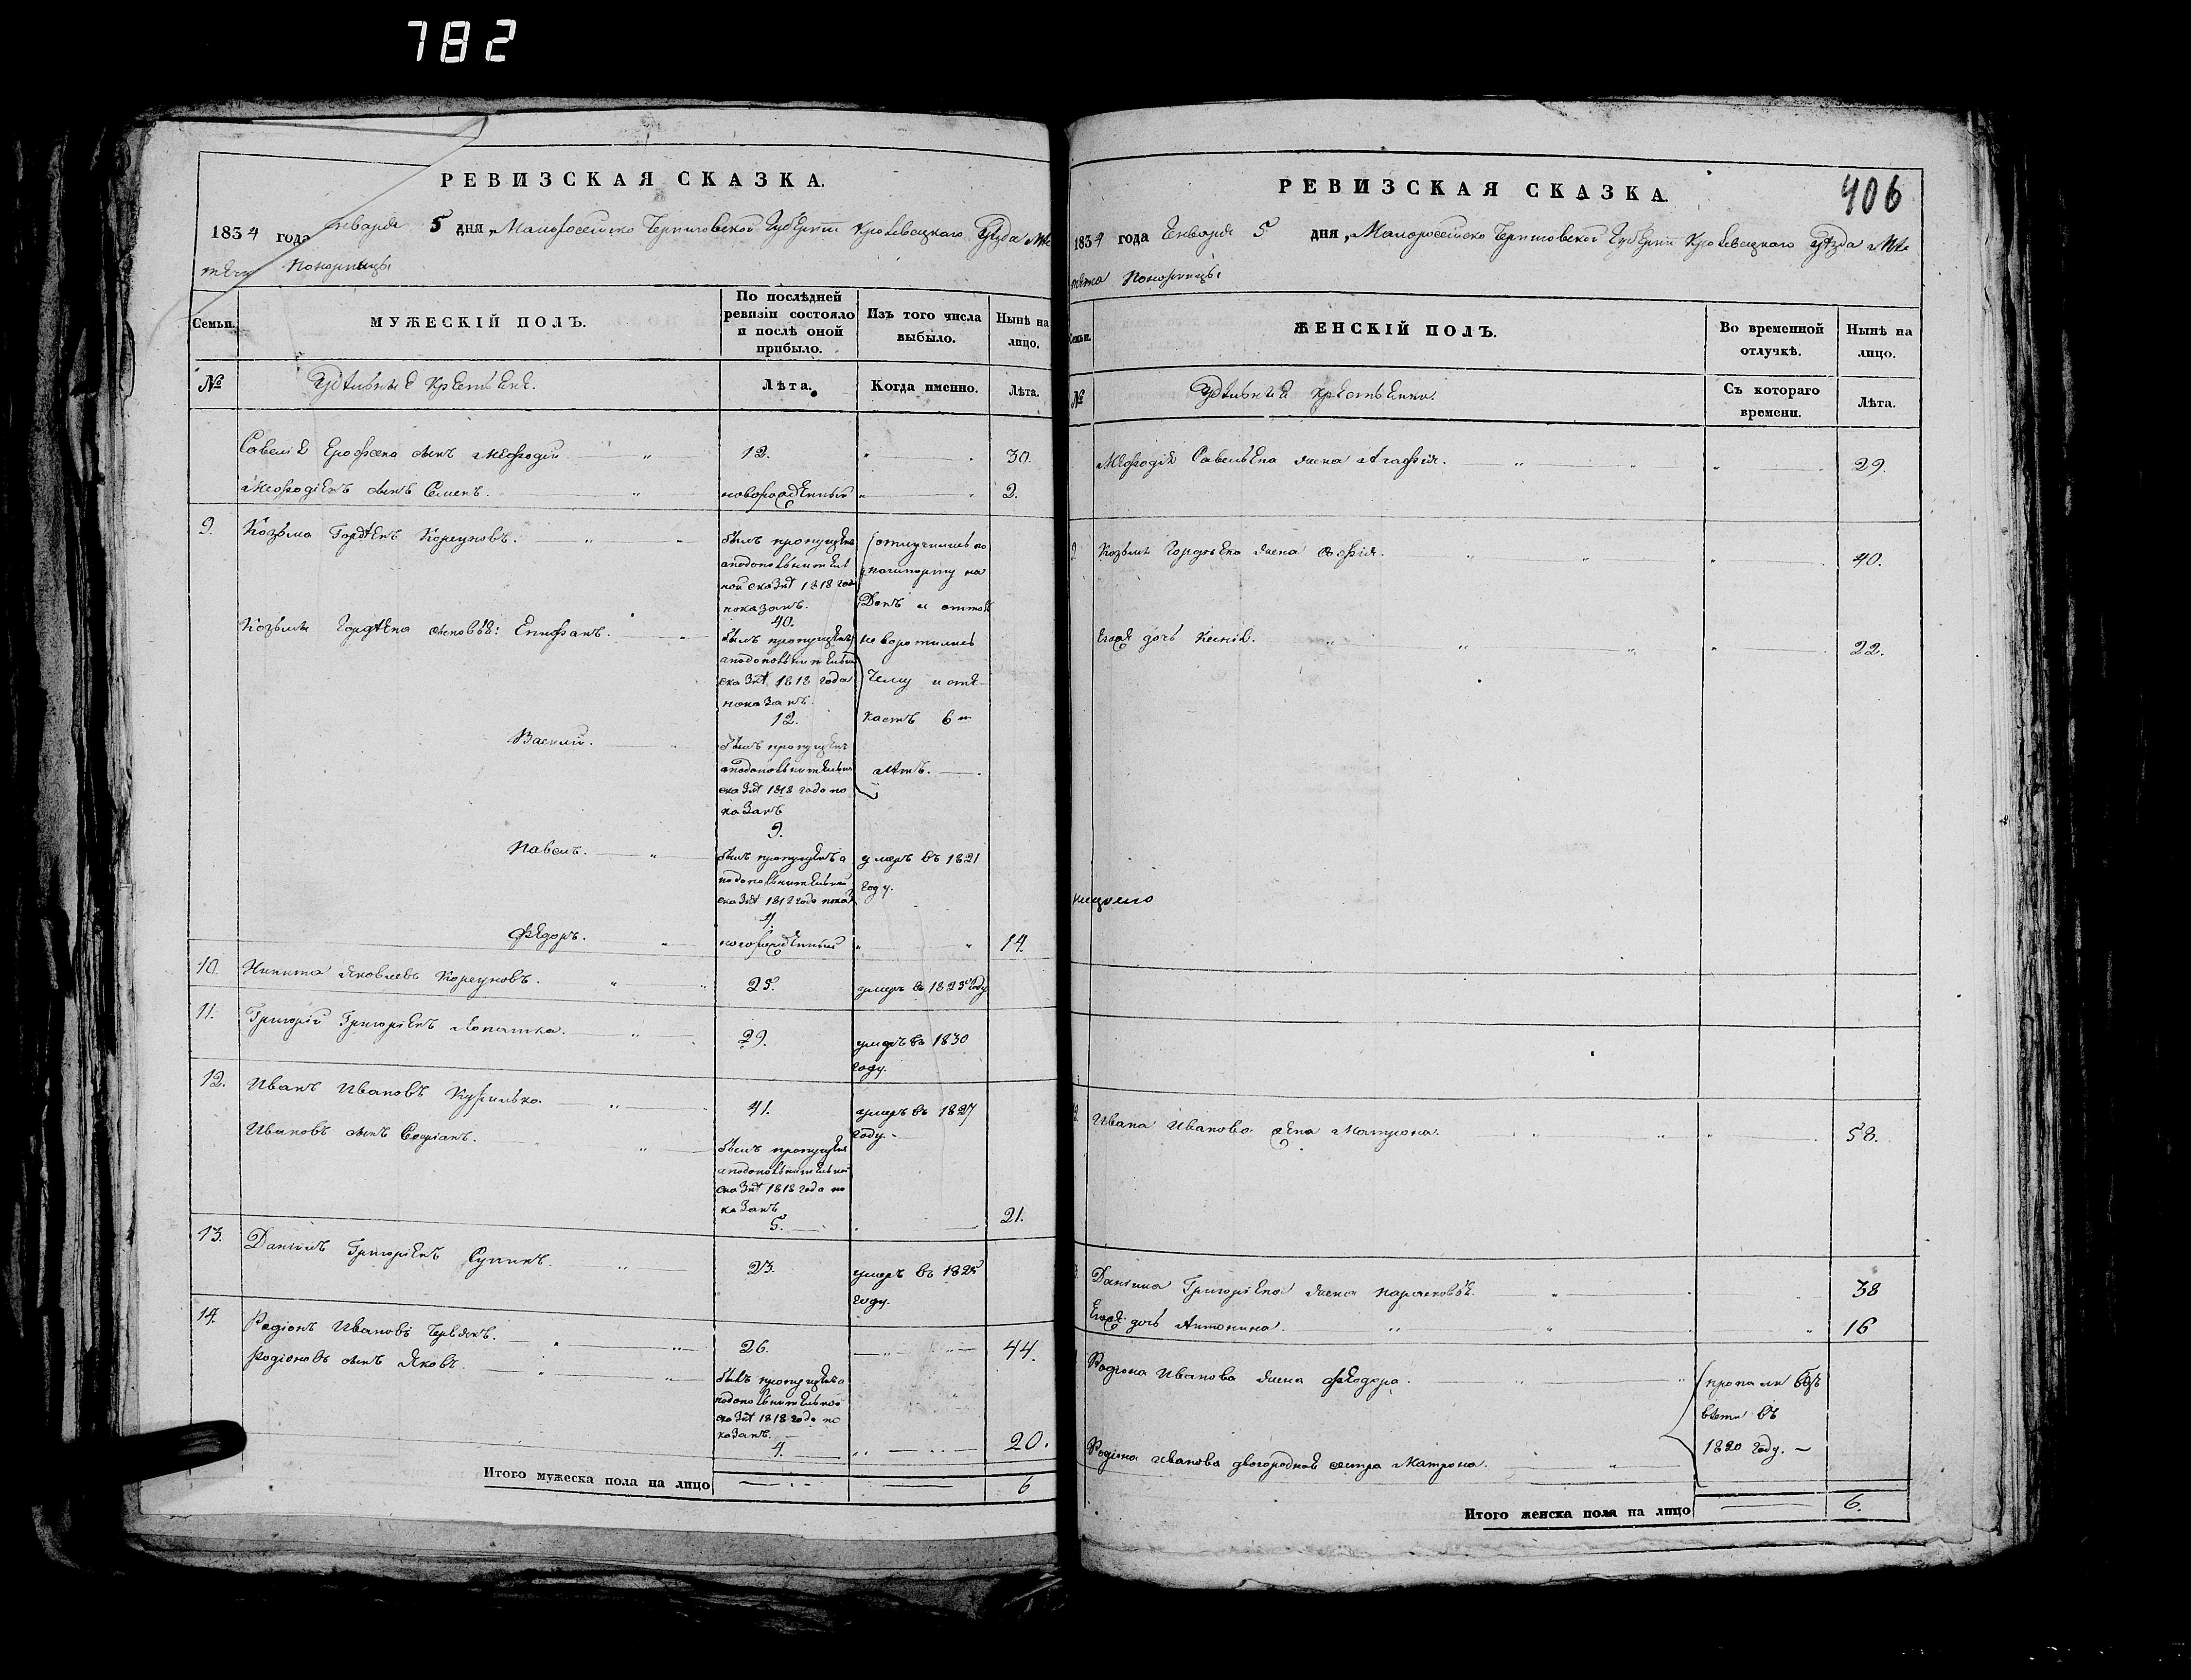 782
РЕВИЗСКАЯ СКАЗКА.
1834 года Января 5 дня, Малоросейско Черниговской Губерніи Кролевецкаго Уѣзда Мѣ
стеч Понорницы
Семьи.
МУЖЕСКІЙ ПОЛЪ.
По послѣдней ревизіи состояло и послѣ оной прибыло.
Изъ того числа выбыло.
Нынѣ на лицо.
№
Удѣльные крестьяне.
Лѣта.
Когда именно.
Лѣта.
Савелія Ерофеева сынъ Меѳодій 12. 30.
Меѳодіевъ сынъ Семенъ. новорожденный 2.
9. Козьма Гордѣевъ Корсуновъ.
былъ пропущенъ
а по дополнитель
ной сказкѣ 1818 года
показанъ.
40.
отлучились по
пашпорту на
Донъ и оттоль
Козьмы Гордѣева сыновья: Епифанъ.
былъ пропущенъ
а по дополнительной
сказкѣ 1818 года
показанъ.
12.
не воротились
Чему и отѣ-
каетъ 6 ть
лѣтъ.
Василій.
былъ пропущенъ
а по дополнительной
сказкѣ 1818 года по
казанъ
9.
Павелъ.
былъ пропущенъ а
по дополнительной
сказкѣ 1818 года показ
4.
умеръ въ 1821
году.
Федоръ. новорожденный 14.
10. Никита Яковлевъ Корсуновъ. 25. умеръ въ 1825 году
11. Григорій Григоріевъ Лопатка. 29. умеръ въ 1830
году.
12. Иванъ Ивановъ Курилько. 41. умеръ въ 1827
году.
Ивановъ сынъ
былъ пропущенъ
а по дополнительной
сказкѣ 1818 года по
казанъ
5. 21.
13. Даніилъ Григоріевъ Супикъ. 23. умеръ въ 1825
году.
14. Родіонъ Ивановъ Червякъ. 26. 44.
Родіоновъ сынъ Яковъ.
былъ пропущенъ а
по дополнительной
сказкѣ 1818 года по
казанъ.
4. 20.
Итого мужеска пола на лицо 6
РЕВИЗСКАЯ СКАЗКА.
406
1834 года Енваря 5 дня, Малоросейско Черниговской Губерніи Кролевецкаго Уѣзда Мѣ
стечка Понорницы
Семьи.
ЖЕНСКІЙ ПОЛЪ.
Во временной отлучкѣ.
Нынѣ на лицо.
№
Удѣльныя крестьянки.
Съ котораго времени.
Лѣта.
Меѳодія Савельева жена Агафія. 29.
9. Козьмы Гордѣева жена Софія. 40.
Егоже дочь Ксенія. 22.
10. Никита Яковлевъ
12. Ивана Иванова жена Матрона. 58.
13. Даніила Григоріева жена Парасковья. 38
Егоже дочь Антонина. 16
Родіона Иванова жена Феодора.
пропали безъ
вѣсти въ
1820 году.
Родіона Иванова двоюродная сестра Матрона.
Итого женска пола на лицо 6.